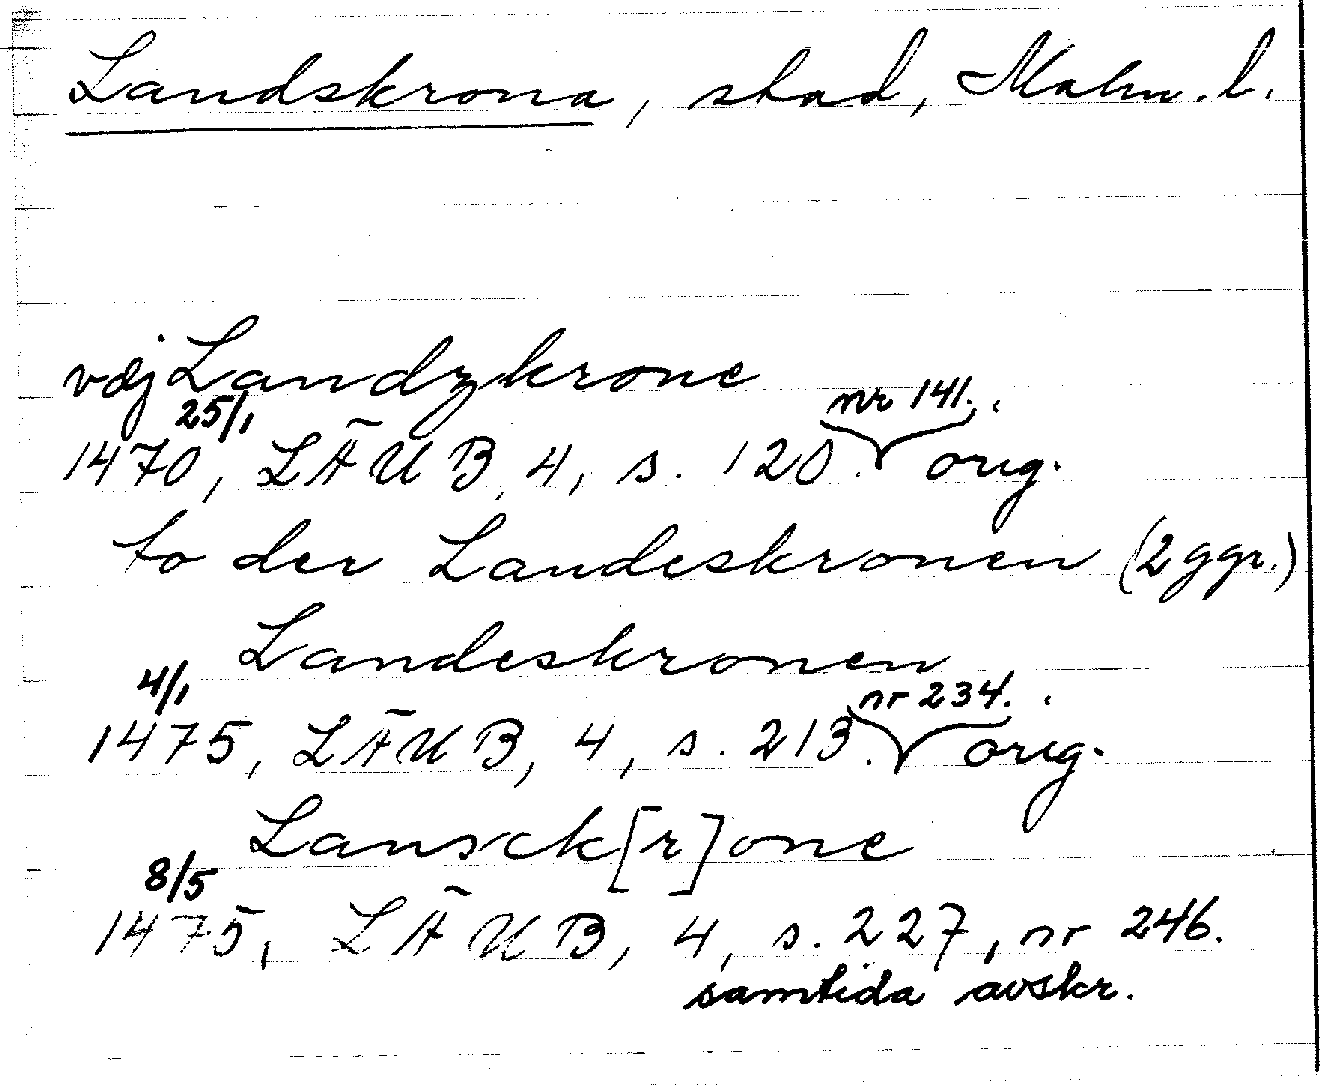 Landskrona, stad, Malm. l.
vdj Landzkrone
1470 25/1, LÄUB, 4, s. 120. nr 141. orig.
to der Landeskronen (2 ggr.)
Landeskronen
1475 4/1, LÄUB, 4, s. 213. nr 234. orig.
Lansck[r]one
1475 8/5, LÄUB, 4, s. 227, nr 246.
samtida avskr.